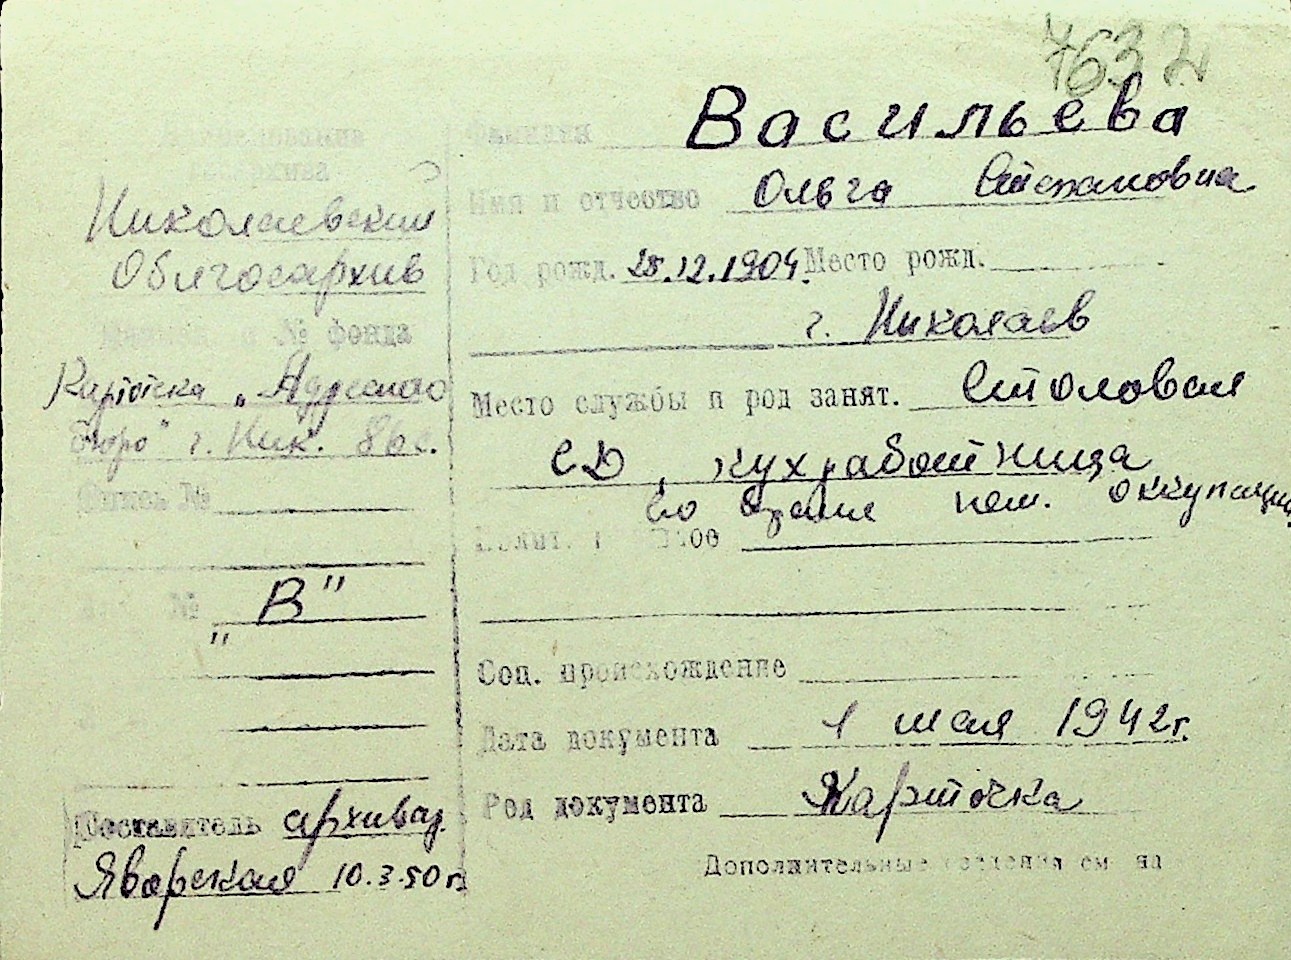 7632
Наименование
госархива
Николаевский
Облгосархив
№ фонда
Картотека „Адресного
бюро" г. Ник. 86 с.
Опись №
№ „В"
Составитель архивар.
Яворская 10.3.50 г.
Фамилия Васильева
Имя и отчество Ольга Степановна
Год рожд. 25.12.1904. Место рожд.
г. Николаев
Место службы и род занят. Столовая
СД, кухработница
во время нем. оккупации
Соц. происхождение
Дата документа 1 мая 1942 г.
Род документа Карточка
Дополнительные сведения см на